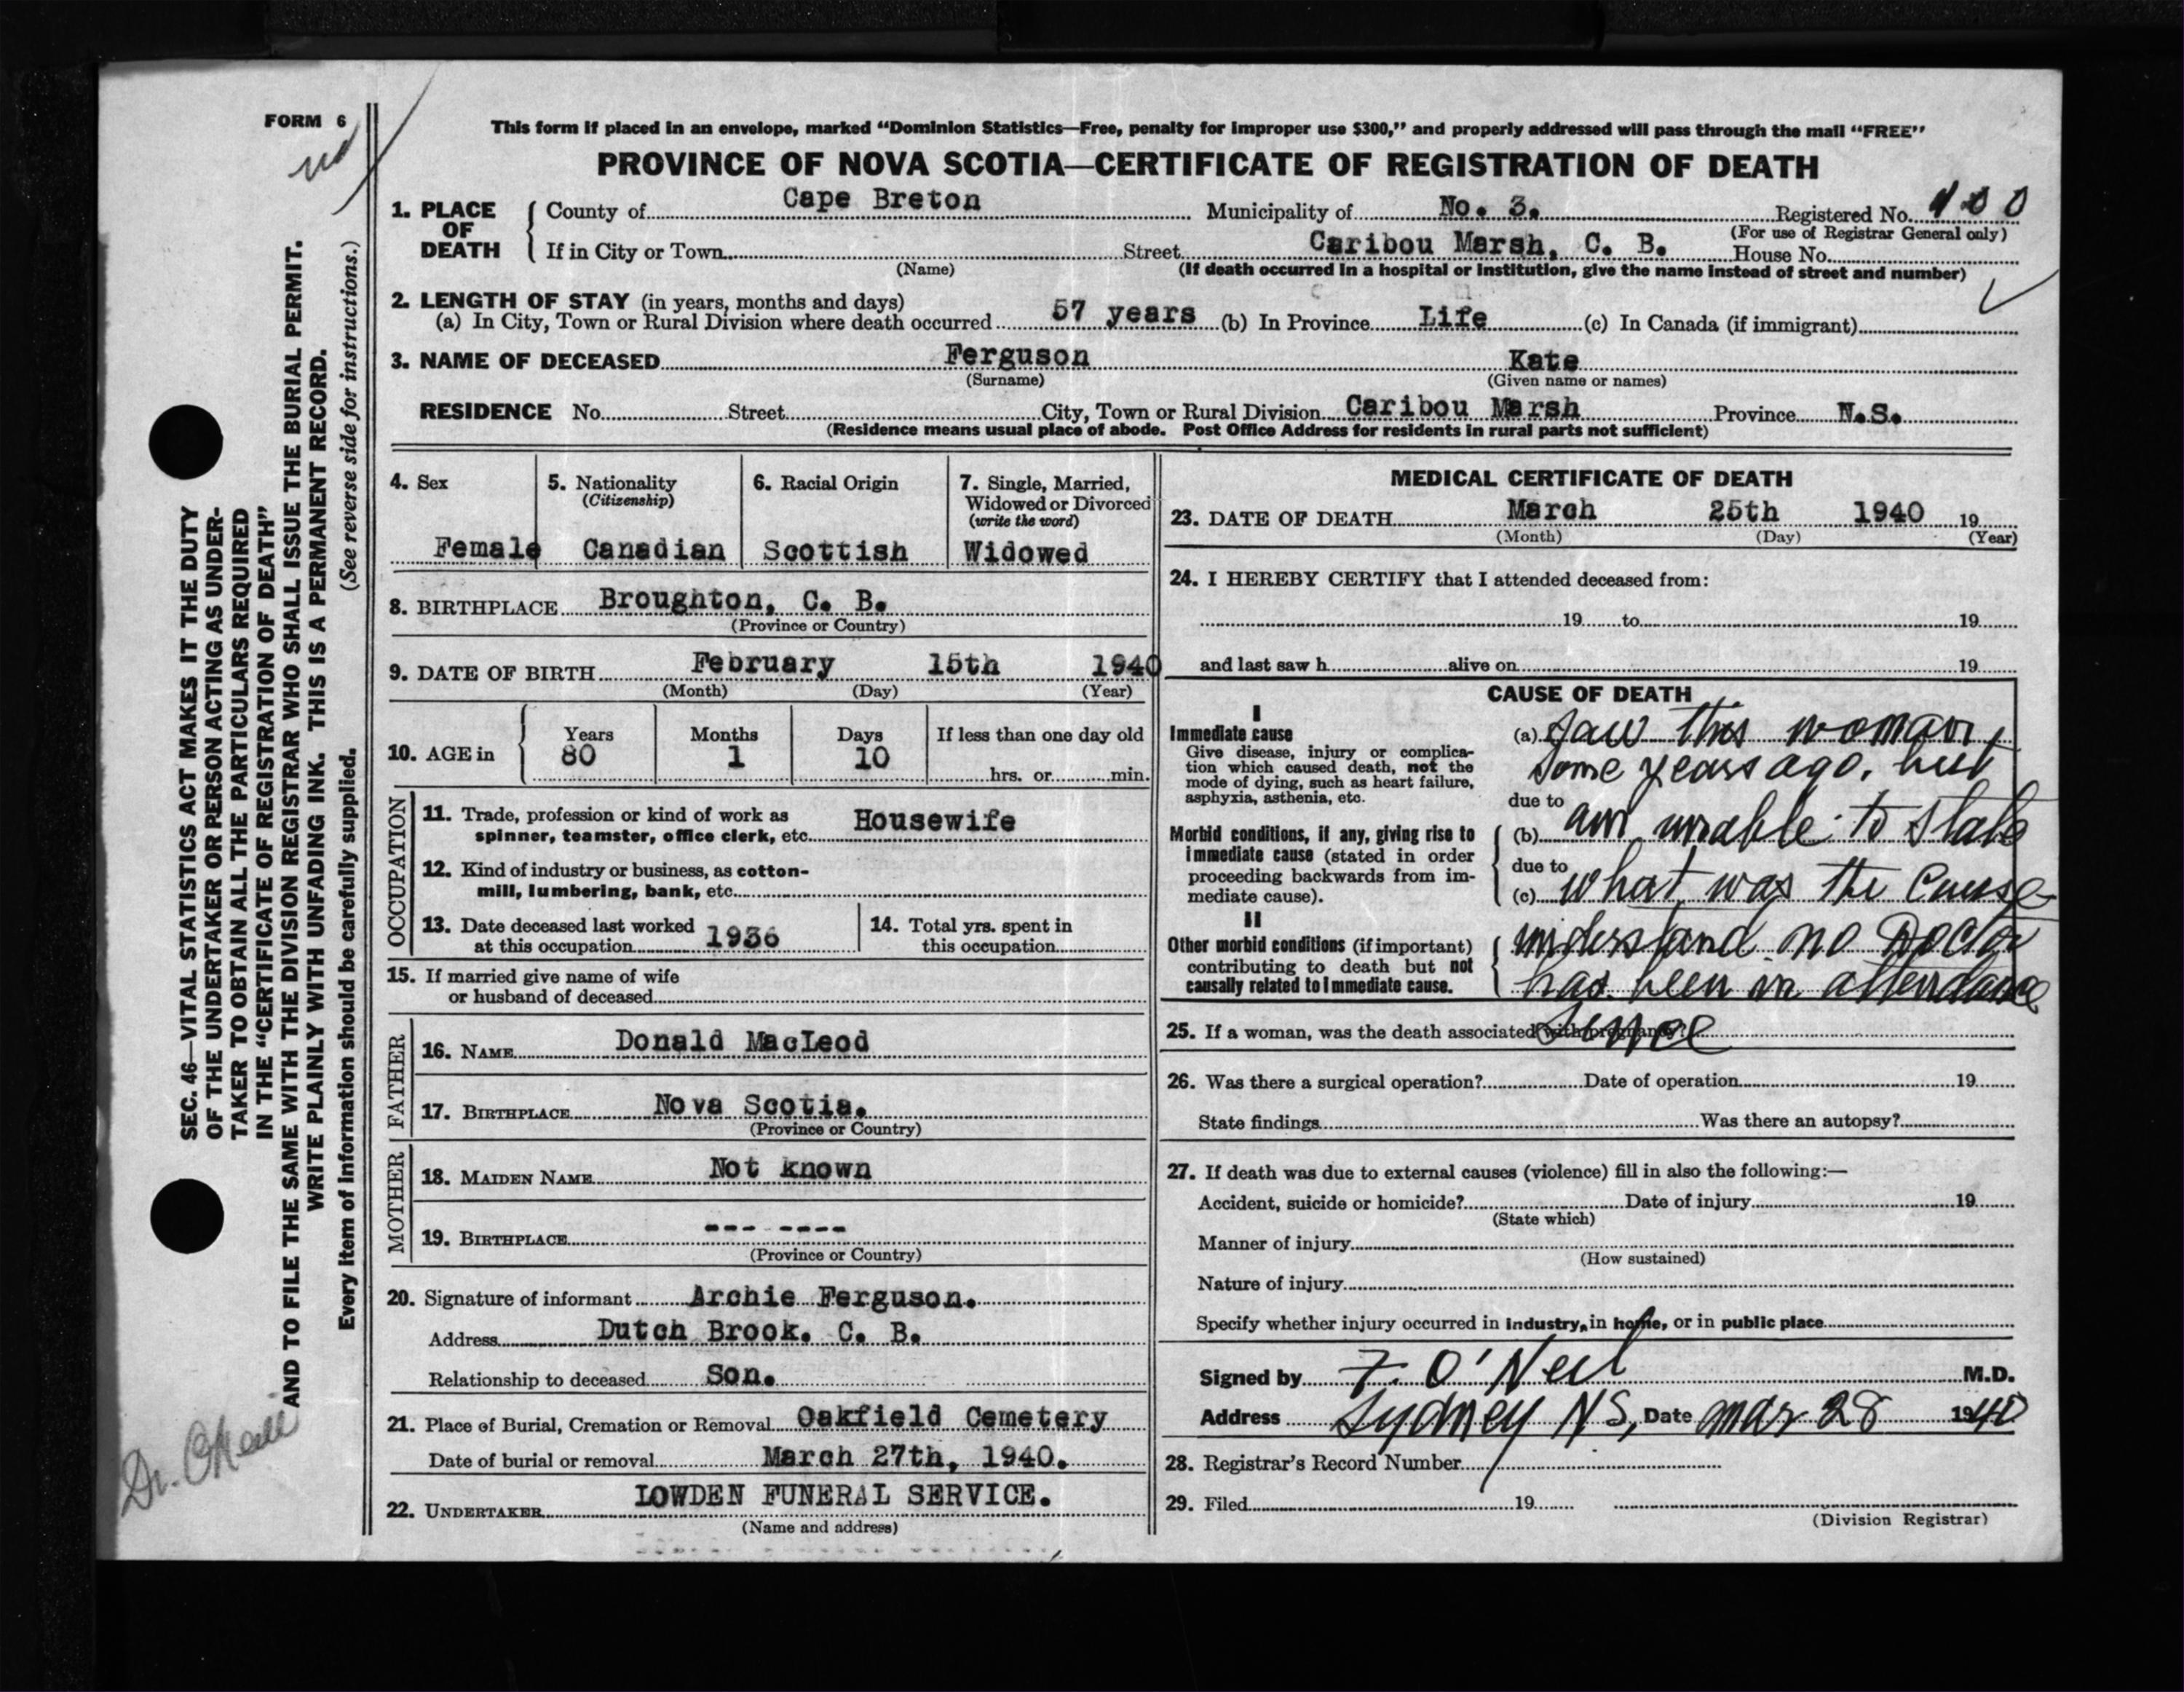 FORM 6
no
This form if placed in an envelope, marked “Dominion Statistics—Free, penalty for improper use $300,” and properly addressed will pass through the mail “FREE”
PROVINCE OF NOVA SCOTIA—CERTIFICATE OF REGISTRATION OF DEATH
1. PLACE OF DEATH
County of Cape Breton Municipality of No. 3. Registered No. 100
(For use of Registrar General only)
If in City or Town Street Caribou Marsh, C. B. House No.
(Name) (If death occurred in a hospital or institution, give the name instead of street and number)
2. LENGTH OF STAY (in years, months and days)
(a) In City, Town or Rural Division where death occurred 57 years (b) In Province Life (c) In Canada (if immigrant)
3. NAME OF DECEASED Ferguson Kate
(Surname) (Given name or names)
RESIDENCE No. Street City, Town or Rural Division Caribou Marsh Province N.S.
(Residence means usual place of abode. Post Office Address for residents in rural parts not sufficient)
4. Sex
Female
5. Nationality
(Citizenship)
Canadian
6. Racial Origin
Scottish
7. Single, Married,
Widowed or Divorced
(write the word)
Widowed
8. BIRTHPLACE Broughton, C. B.
(Province or Country)
9. DATE OF BIRTH February 15th 1940
(Month) (Day) (Year)
10. AGE in
Years Months Days If less than one day old
80 1 10
hrs. or min.
OCCUPATION
11. Trade, profession or kind of work as
spinner, teamster, office clerk, etc. Housewife
12. Kind of industry or business, as cotton-
mill, lumbering, bank, etc.
13. Date deceased last worked
at this occupation 1936
14. Total yrs. spent in
this occupation
15. If married give name of wife
or husband of deceased
FATHER
16. NAME Donald MacLeod
17. BIRTHPLACE Nova Scotia.
(Province or Country)
MOTHER
18. MAIDEN NAME Not known
19. BIRTHPLACE --- ----
(Province or Country)
20. Signature of informant Archie Ferguson.
Address Dutch Brook. C. B.
Relationship to deceased Son.
21. Place of Burial, Cremation or Removal Oakfield Cemetery
Date of burial or removal March 27th, 1940.
22. UNDERTAKER LOWDEN FUNERAL SERVICE.
(Name and address)
MEDICAL CERTIFICATE OF DEATH
23. DATE OF DEATH March 25th 1940 19
(Month) (Day) (Year)
24. I HEREBY CERTIFY that I attended deceased from:
19 to 19
and last saw h alive on 19
CAUSE OF DEATH
I
Immediate cause
Give disease, injury or complica-
tion which caused death, not the
mode of dying, such as heart failure,
asphyxia, asthenia, etc.
(a) Saw this woman
some years ago, but
due to
Morbid conditions, if any, giving rise to
immediate cause (stated in order
proceeding backwards from im-
mediate cause).
(b) am unable to state
due to
(c) what was the cause
II
Other morbid conditions (if important)
contributing to death but not
causally related to immediate cause.
understand no Doctor
has been in attendance
since
25. If a woman, was the death associated with pregnancy?
26. Was there a surgical operation? Date of operation 19
State findings Was there an autopsy?
27. If death was due to external causes (violence) fill in also the following:—
Accident, suicide or homicide? Date of injury 19
(State which)
Manner of injury
(How sustained)
Nature of injury
Specify whether injury occurred in industry, in home, or in public place
Signed by F. O'Neil M.D.
Address Sydney NS, Date Mar 28 1940
28. Registrar's Record Number
29. Filed 19
(Division Registrar)
SEC. 46—VITAL STATISTICS ACT MAKES IT THE DUTY
OF THE UNDERTAKER OR PERSON ACTING AS UNDER-
TAKER TO OBTAIN ALL THE PARTICULARS REQUIRED
IN THE “CERTIFICATE OF REGISTRATION OF DEATH”
AND TO FILE THE SAME WITH THE DIVISION REGISTRAR WHO SHALL ISSUE THE BURIAL PERMIT.
WRITE PLAINLY WITH UNFADING INK. THIS IS A PERMANENT RECORD.
Every item of information should be carefully supplied. (See reverse side for instructions.)
Dr. O'Neill